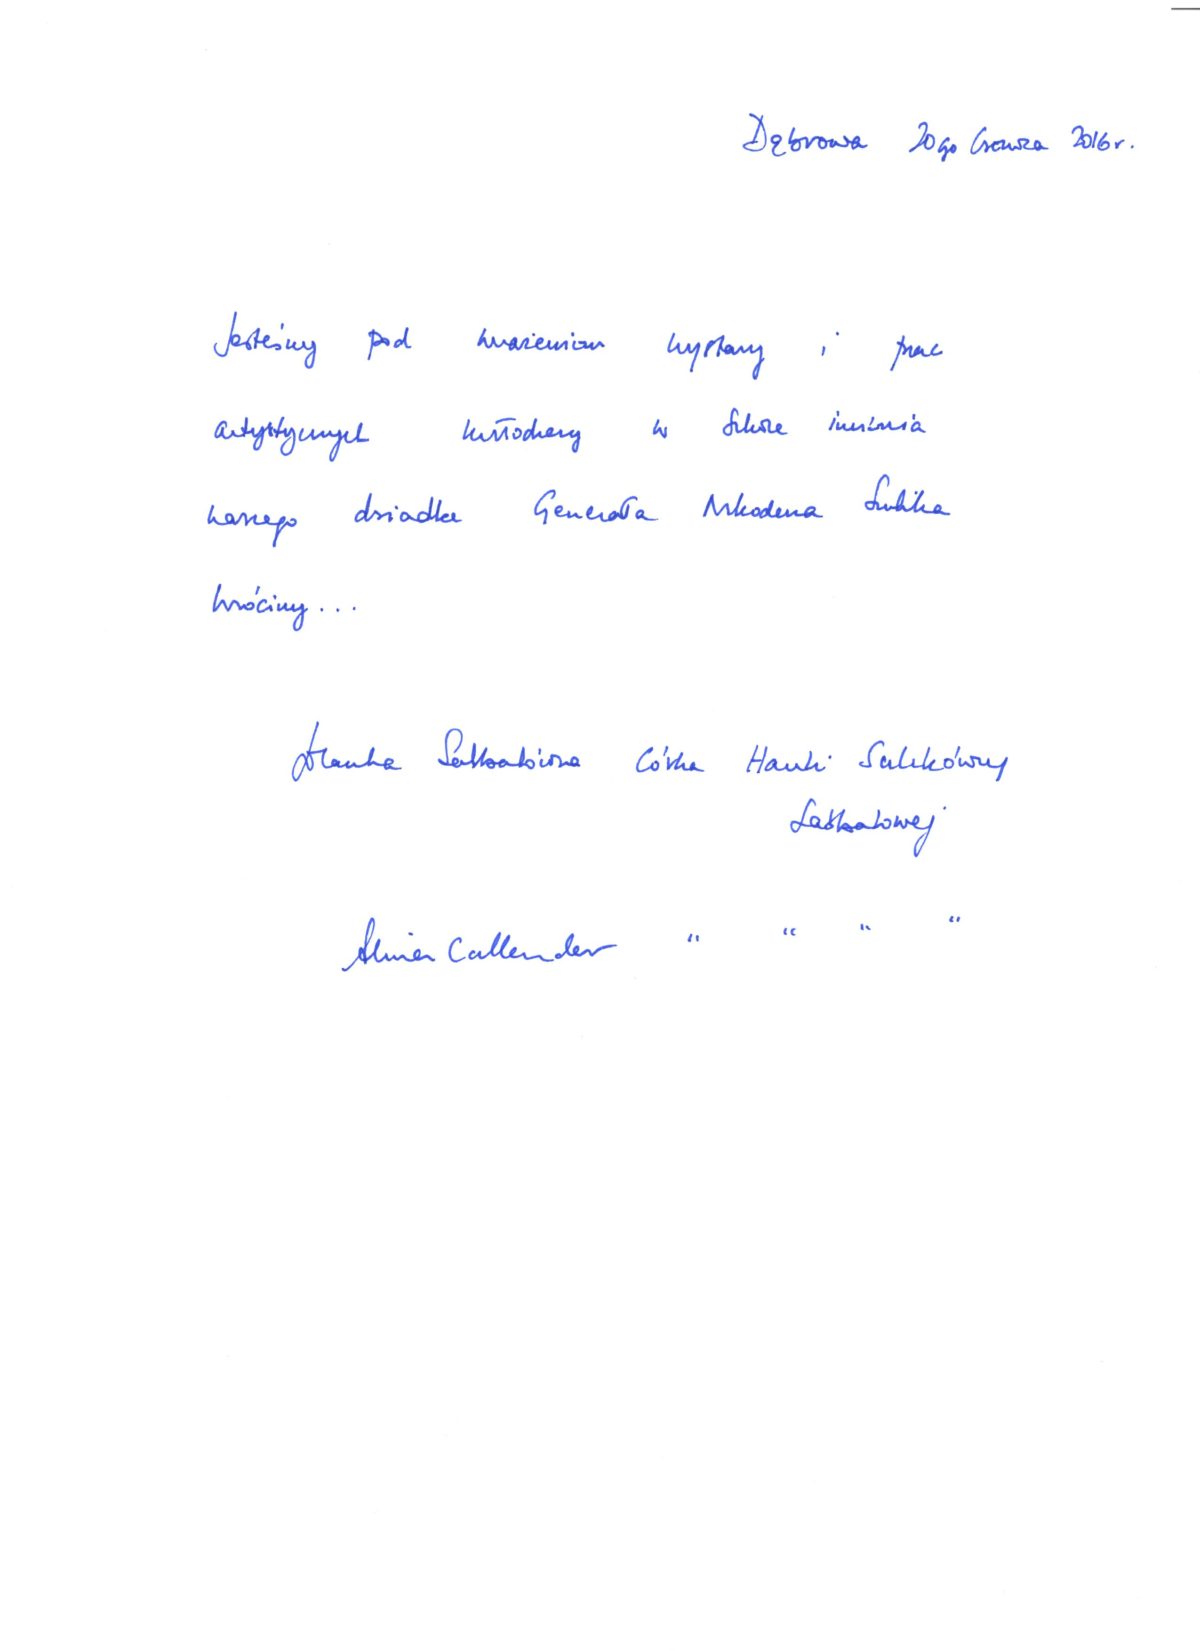 Dąbrowa 20go Czerwca 2016 r.
Jesteśmy pod wrażeniem wystawy i prac
artystycznych młodzieży w Szkole imienia
naszego dziadka Generała Nikodema Sulika
Wrócimy...
Hanka Córka Hanki Sulikówny
Alina Callender " " " "